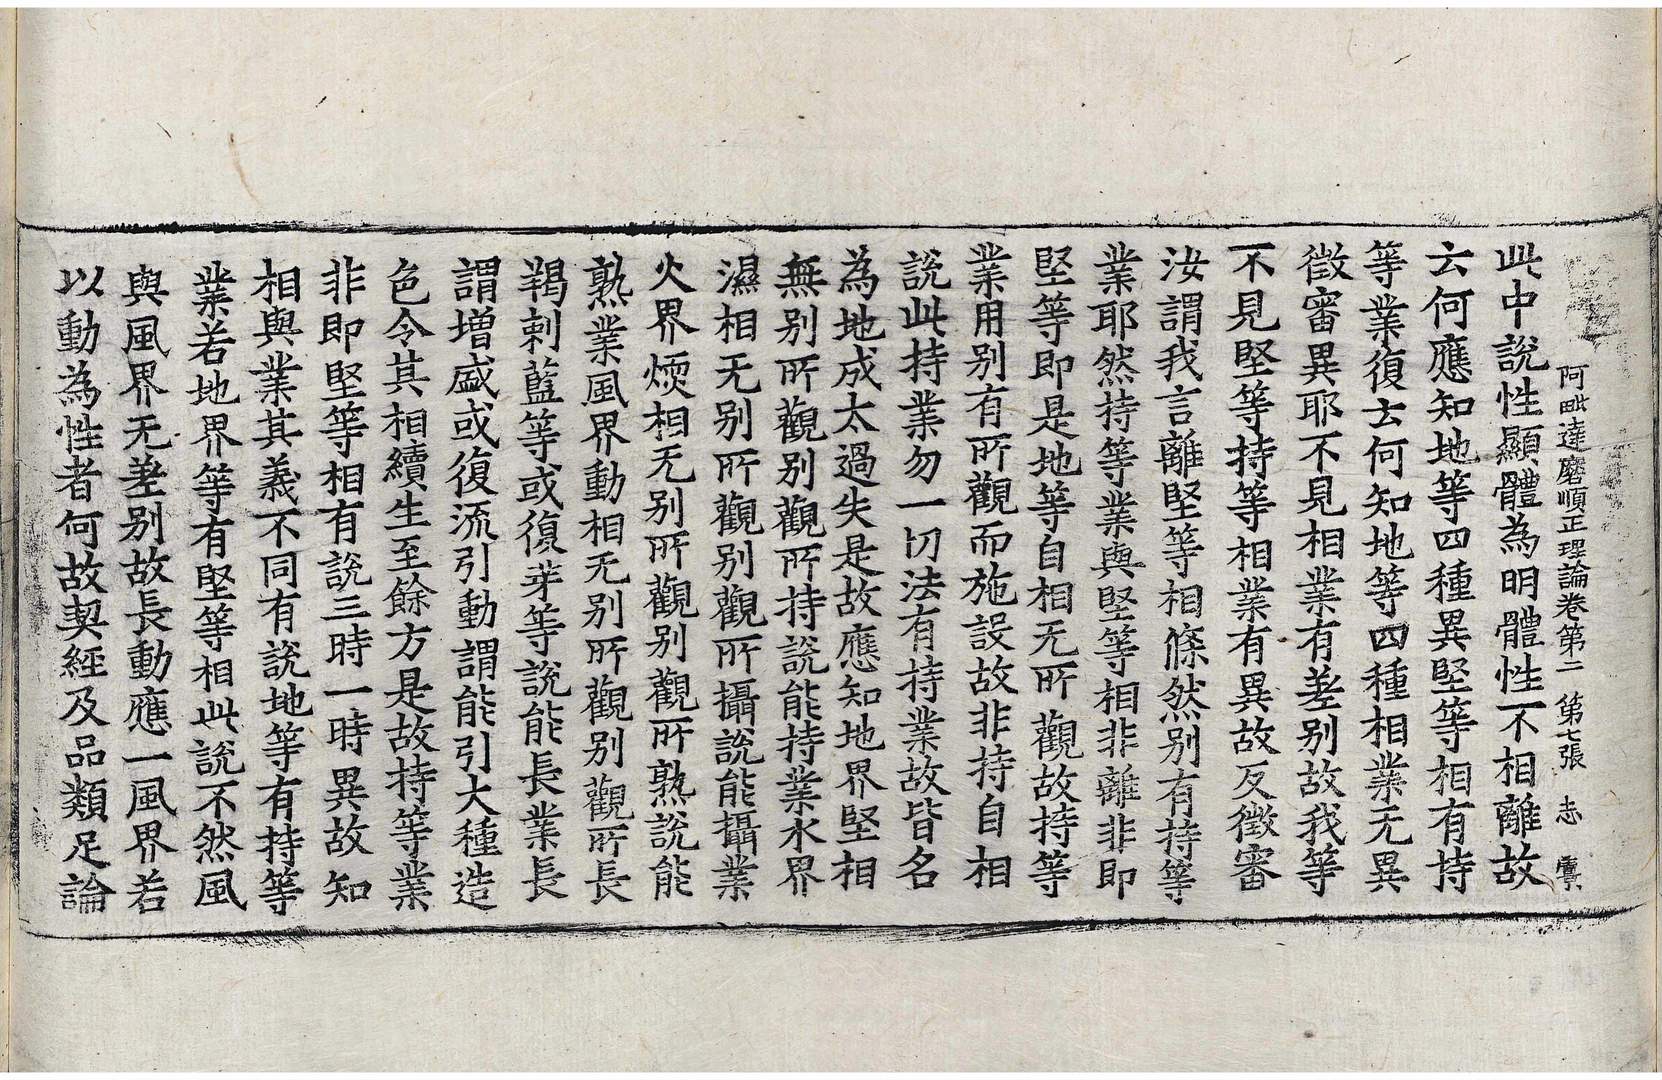 阿毗達磨順正理論卷第二 第七張 志
此中說性顯體為明體性不相離故
云何應知地等四種異堅等相有持
等業復云何知地等四種相業无異
徵審異耶不見相業有差別故我等
不見堅等持等相業有異故反徵審
汝謂我言離堅等相條然別有持等
業耶然持等業與堅等相非離非即
堅等即是地等自相无所觀故持等
業用別有所觀而施設故非持自相
說此持業勿一切法有持業故皆名
為地成太過失是故應知地界堅相
無別所觀別觀所持說能持業水界
濕相无別所觀別觀所攝說能攝業
火界煗相无別所觀別觀所熟說能
熟業風界動相无別所觀別觀所長
羯剌藍等或復芽等說能長業長
謂增盛或復流引動謂能引大種造
色令其相續生至餘方是故持等業
非即堅等相有說三時一時異故知
相與業其義不同有說地等有持等
業若地界等有堅等相此說不然風
與風界无差別故長動應一風界若
以動為性者何故契經及品類足論